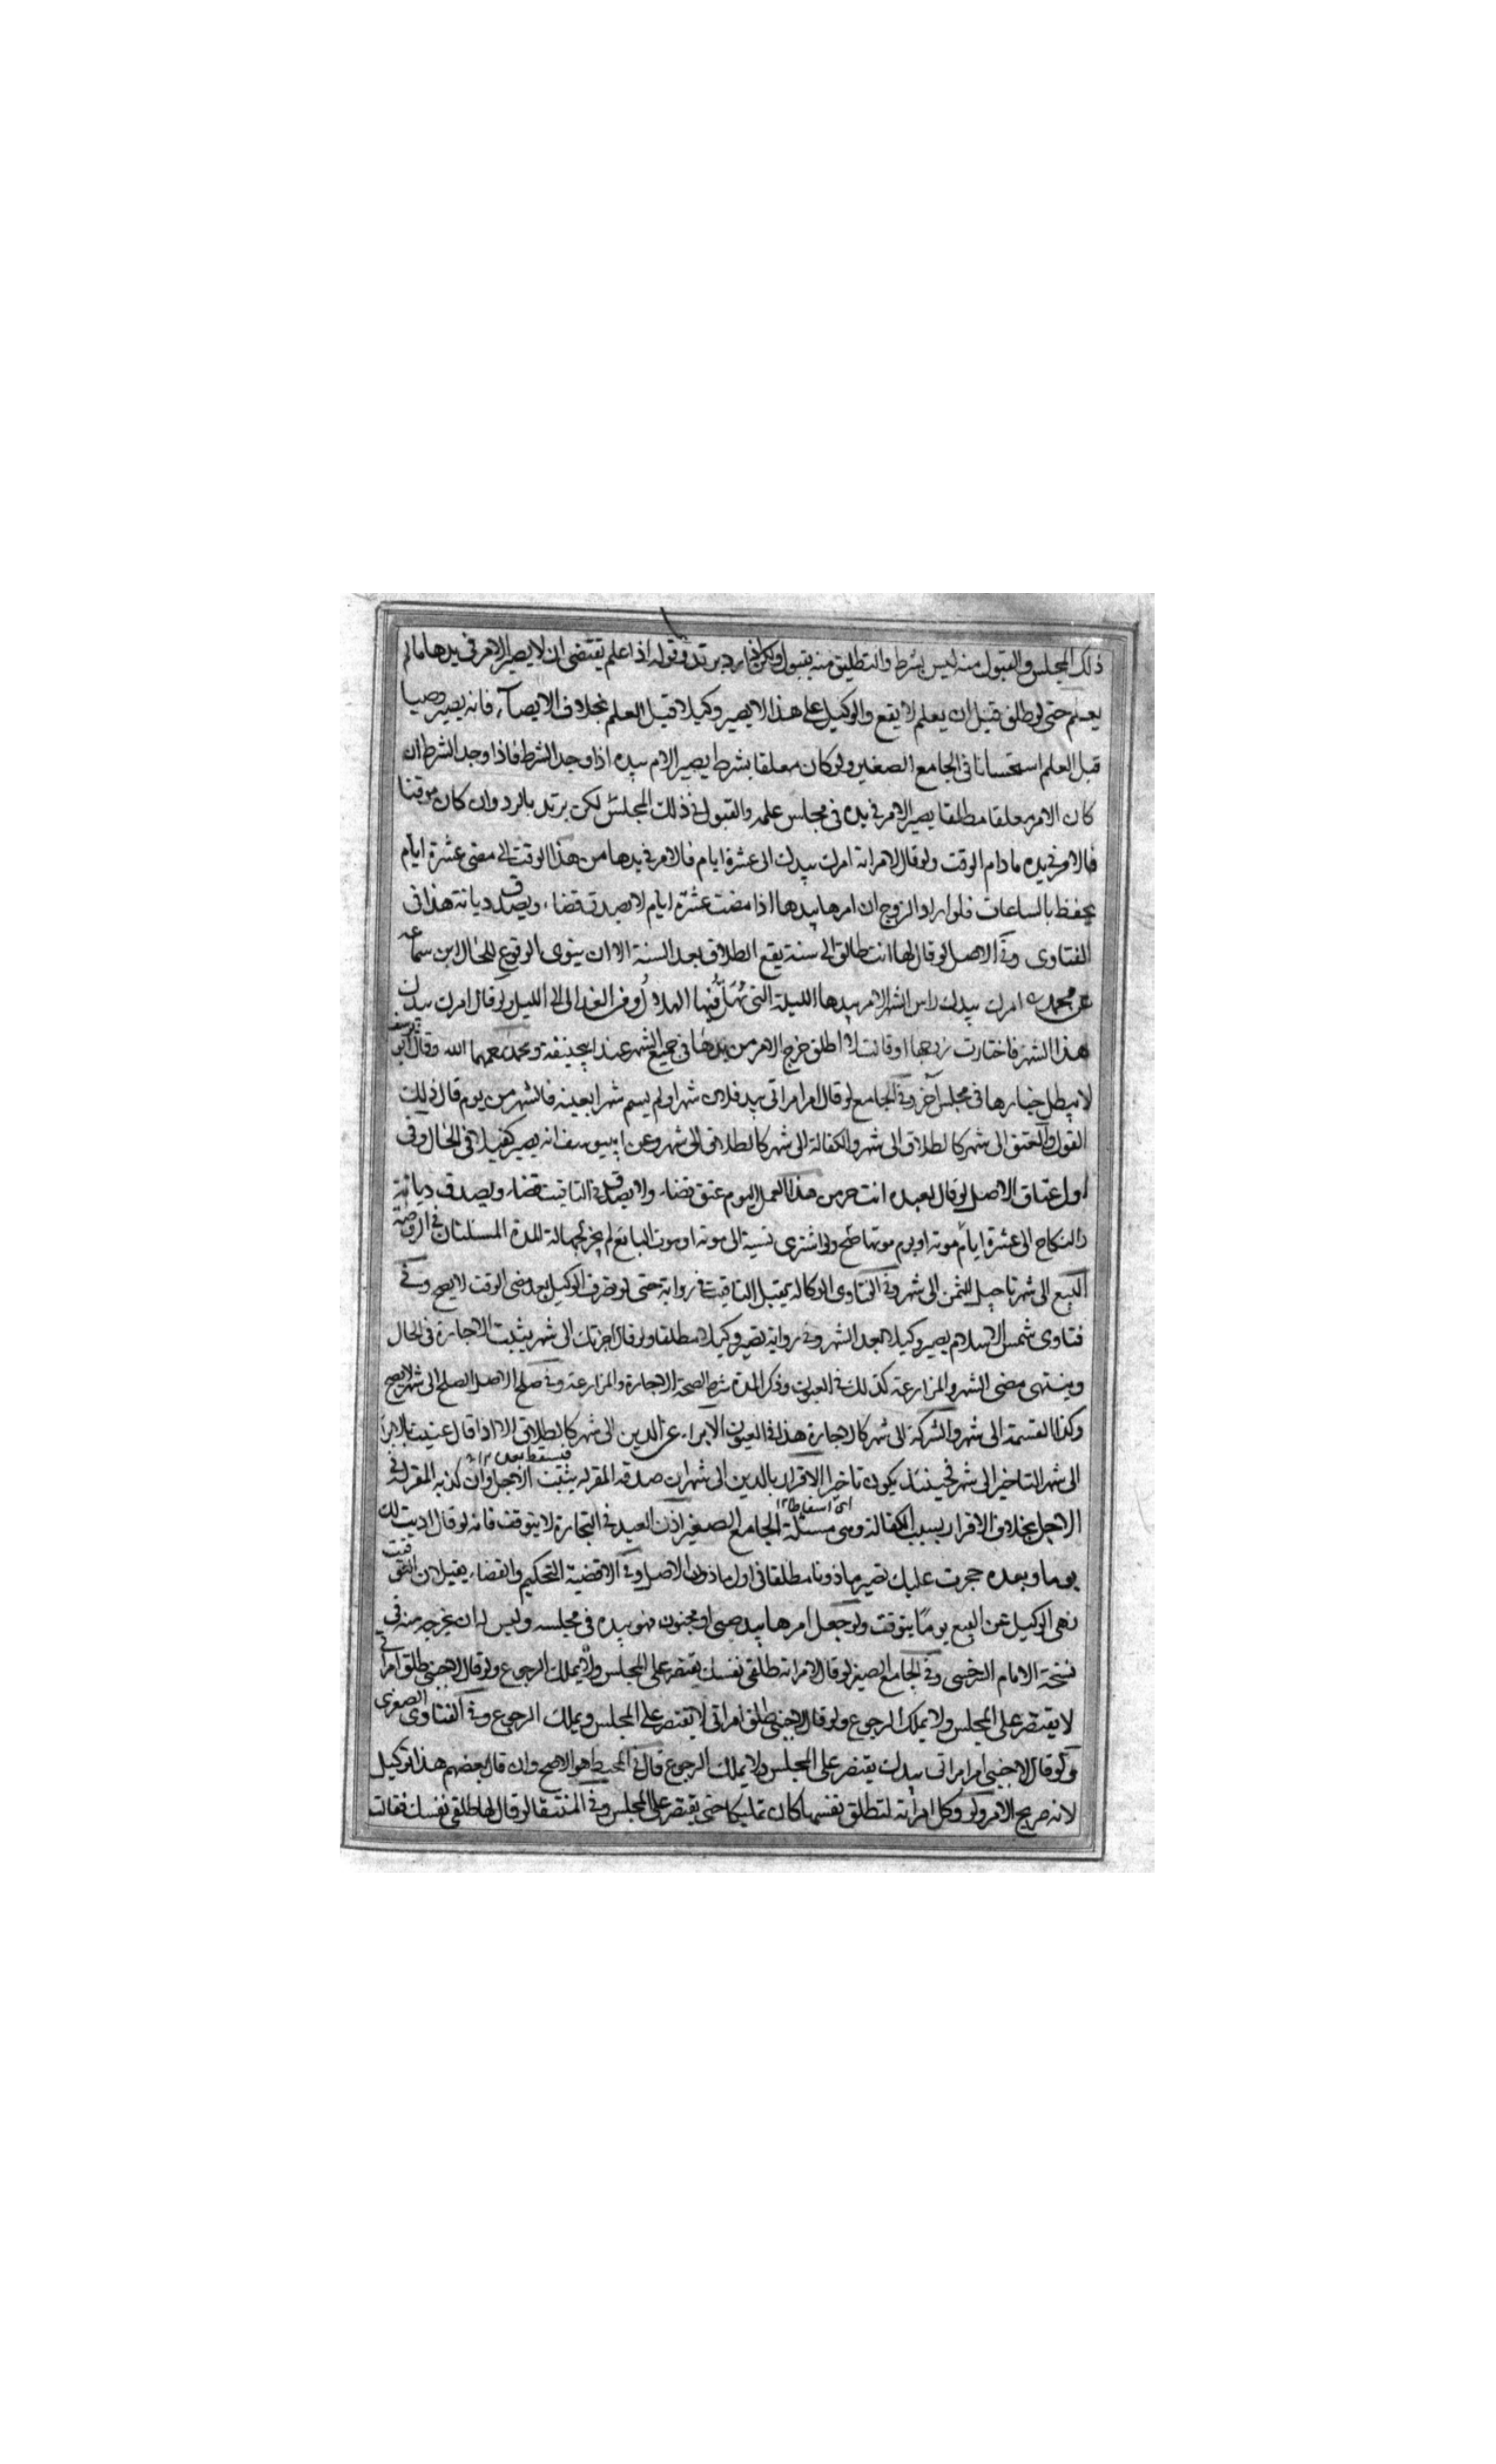 ذلك المجلس والقبول منه ليس بشرط والتطليق منه يقبول ولكن اذا رد يرتد وقوله اذا علم يقتضى ان لا يصير الامر فى يدها ما لم
يعلم حتى لو طلق قبل ان يعلم لا يقع والوكيل على هذا لا يصير وكيلا قبل العلم بخلاف الايصاء فانه يصير وصيا
قبل العلم استحسانا فى الجامع الصغير ولو كان معلقا بشرط يصير الامر بيده اذا وجد الشرط فاذا وجد الشرط ان
كان الامر معلقا مطلقا يصير الامر فى يده فى مجلس علمه والقبول فى ذلك المجلس لكن يرتد بالرد وان كان موقتا
فالامر فى يده ما دام الوقت ولو قال لامراته امرك بيدك الى عشرة ايام فالامر فى يدها من هذا الوقت الى مضى عشرة ايام
يحفظ بالساعات فلو اراد الزوج ان امرها بيدها اذا مضت عشرة ايام لا يصدق قضاء ويصدق ديانة هذا فى
الفتاوى وفى الاصل لو قال لها انت طالق الى سنة يقع الطلاق بعد السنة الا ان ينوى الوقوع للحال ابن سماعه
عن محمد امرك بيدك راس الشهر الامر بيدها الليلة التى يهل فيها الهلال ومن الغد الى الليل ولو قال امرك بيدك
هذا الشهر فاختارت زوجها او قالت لا اطلق خرج الامر من يدها فى جميع الشهر عند ابيحنيفة ومحمد رحمهما الله وقال ابو يوسف
لا يبطل خيارها فى مجلس آخر وفى الجامع لو قال امر امراتى بيد فلان شهرا ولم يسم شهرا بعينه فالشهر من يوم قال ذلك
القول والعتق الى شهر كالطلاق الى شهر والكفالة الى شهر كالطلاق الى شهر وعن ابييوسف انه يصير كفيلا فى الحال وفى
اول عتاق الاصل لو قال لعبده انت حر من هذا العمل اليوم عتق قضاء ولا يصدق فى التاقيت قضاء ويصدق ديانة
والنكاح الى عشرة ايام موته او يوم موتها صح ولو اشترى نسية الى موته او موت البايع لم يجز لجهالة المدة المسئلتان فى الروضة
البيع الى شهر تاجيل للثمن الى شهر وفى الفتاوى الوكالة يقبل التاقيت فى رواية حتى لو تصرف الوكيل بعد مضى الوقت لا يصح وفى
فتاوى شمس الاسلام يصير وكيلا بعد الشهر وفى رواية تصير وكيلا مطلقا ولو قال اجرتك الى شهر يثبت الاجارة فى الحال
وينتهى مضى الشهر والمزارعة كذلك فى العيون وذكر المدة شرط لصحة الاجارة والمزارعة وفى صلح الاصل الصلح الى شهر لا يصح
وكذا القسمة الى شهر والشركة الى شهر كالاجارة هذا فى العيون الابراء عن الدين الى شهر كالطلاق الا اذا قال عنيت بالابراء
الى شهر التاخير الى شهر فحينئذ يكون تاخيرا الاقرار بالدين الى شهر ان صدقه المقر له يثبت الاجل وان كذبه المقر له فى
فيسقط بعده ١٢
الاجل بخلاف الاقرار بسبب الكفالة وهى مسئلة الجامع الصغير اذن العبد فى التجارة لا يتوقف فانه لو قال اذنت لك
اى اسقاطا ١٢
يوما وبعده حجرت عليك تصير ماذونا مطلقا فى اول ماذون الاصل وفى الاقضية التحكيم والقضاء يقبلان التوقيت
نهى الوكيل عن البيع يوما يتوقت ولو جعل امرها بيد صبى او مجنون فهو بيده فى مجلسه وليس له ان يخرجه منه فى
نسخة الامام السرخسى وفى الجامع الصغير لو قال لامراته طلقى نفسك يقتصر على المجلس ولا يملك الرجوع ولو قال لاجنبى طلق امراتى
لا يقتصر على المجلس ولا يملك الرجوع ولو قال لاجنبى طلق امراتى لا يقتصر على المجلس ويملك الرجوع وفى الفتاوى الصغرى
ولو قال لاجنبى امر امراتى بيدك يقتصر على المجلس ولا يملك الرجوع قال فى المحيط هو الاصح وان قال بعضهم هذا توكيل
لانه صريح الامر ولو وكل امرأته لتطلق نفسها كان تمليكا حتى يقتصر على المجلس وفى المنتقا لو قال لها طلقى نفسك فقالت